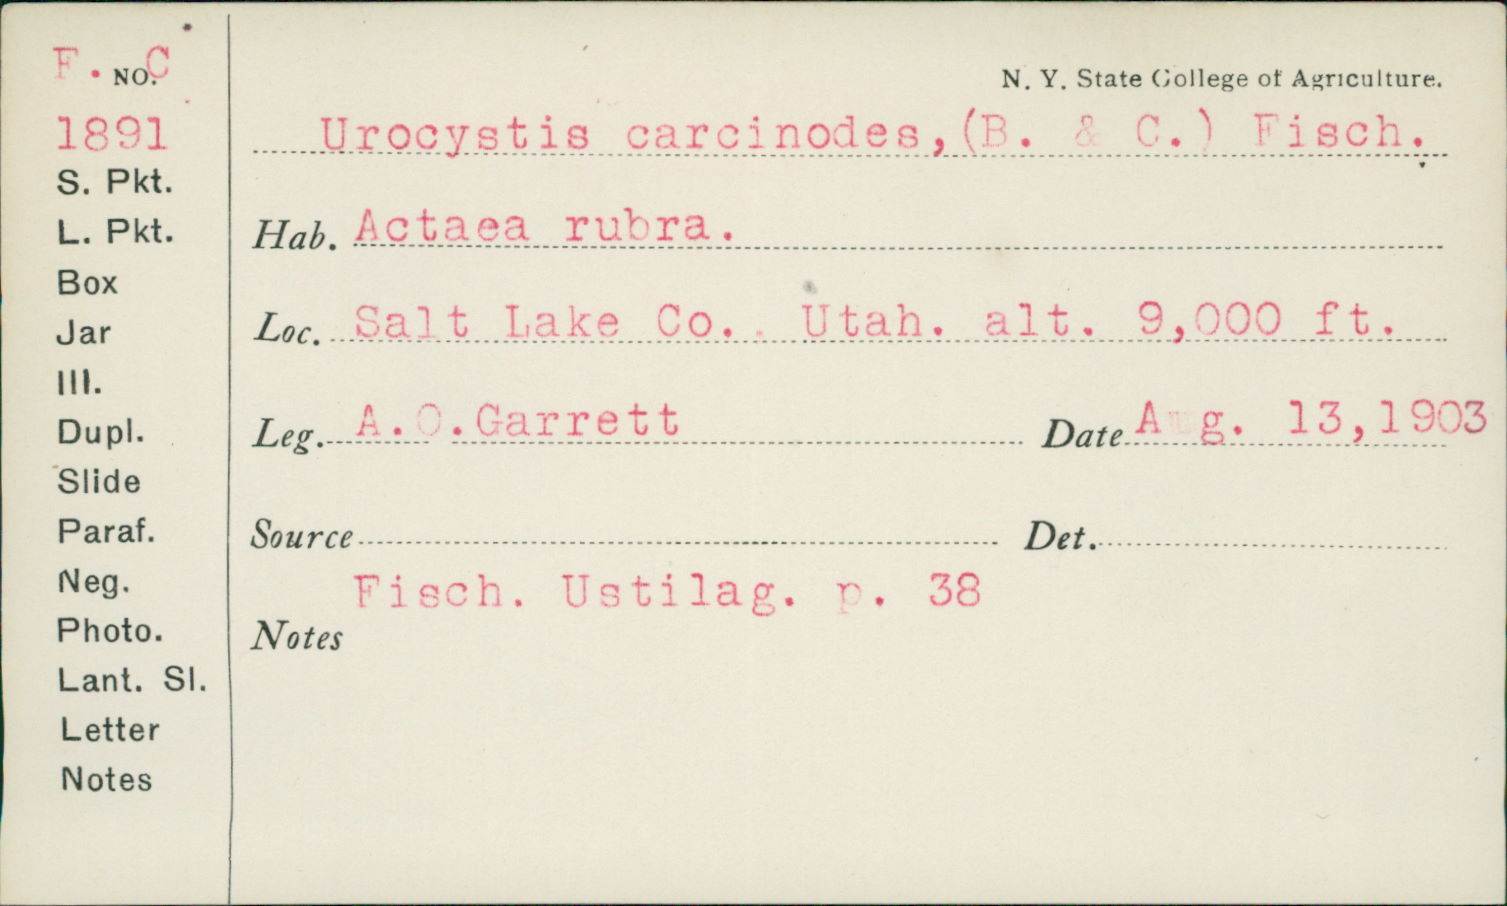 F. C
NO.
1891
S. Pkt.
L. Pkt.
Box
Jar
Ill.
Dupl.
Slide
Paraf.
Neg.
Photo.
Lant. Sl.
Letter
Notes
N. Y. State College of Agriculture.
Urocystis carcinodes,(B. & C.) Fisch.
Hab. Actaea rubra.
Loc. Salt Lake Co.. Utah. alt. 9,000 ft.
Leg. A.O.Garrett Date Aug. 13,1903
Source Det.
Fisch. Ustilag. p. 38
Notes